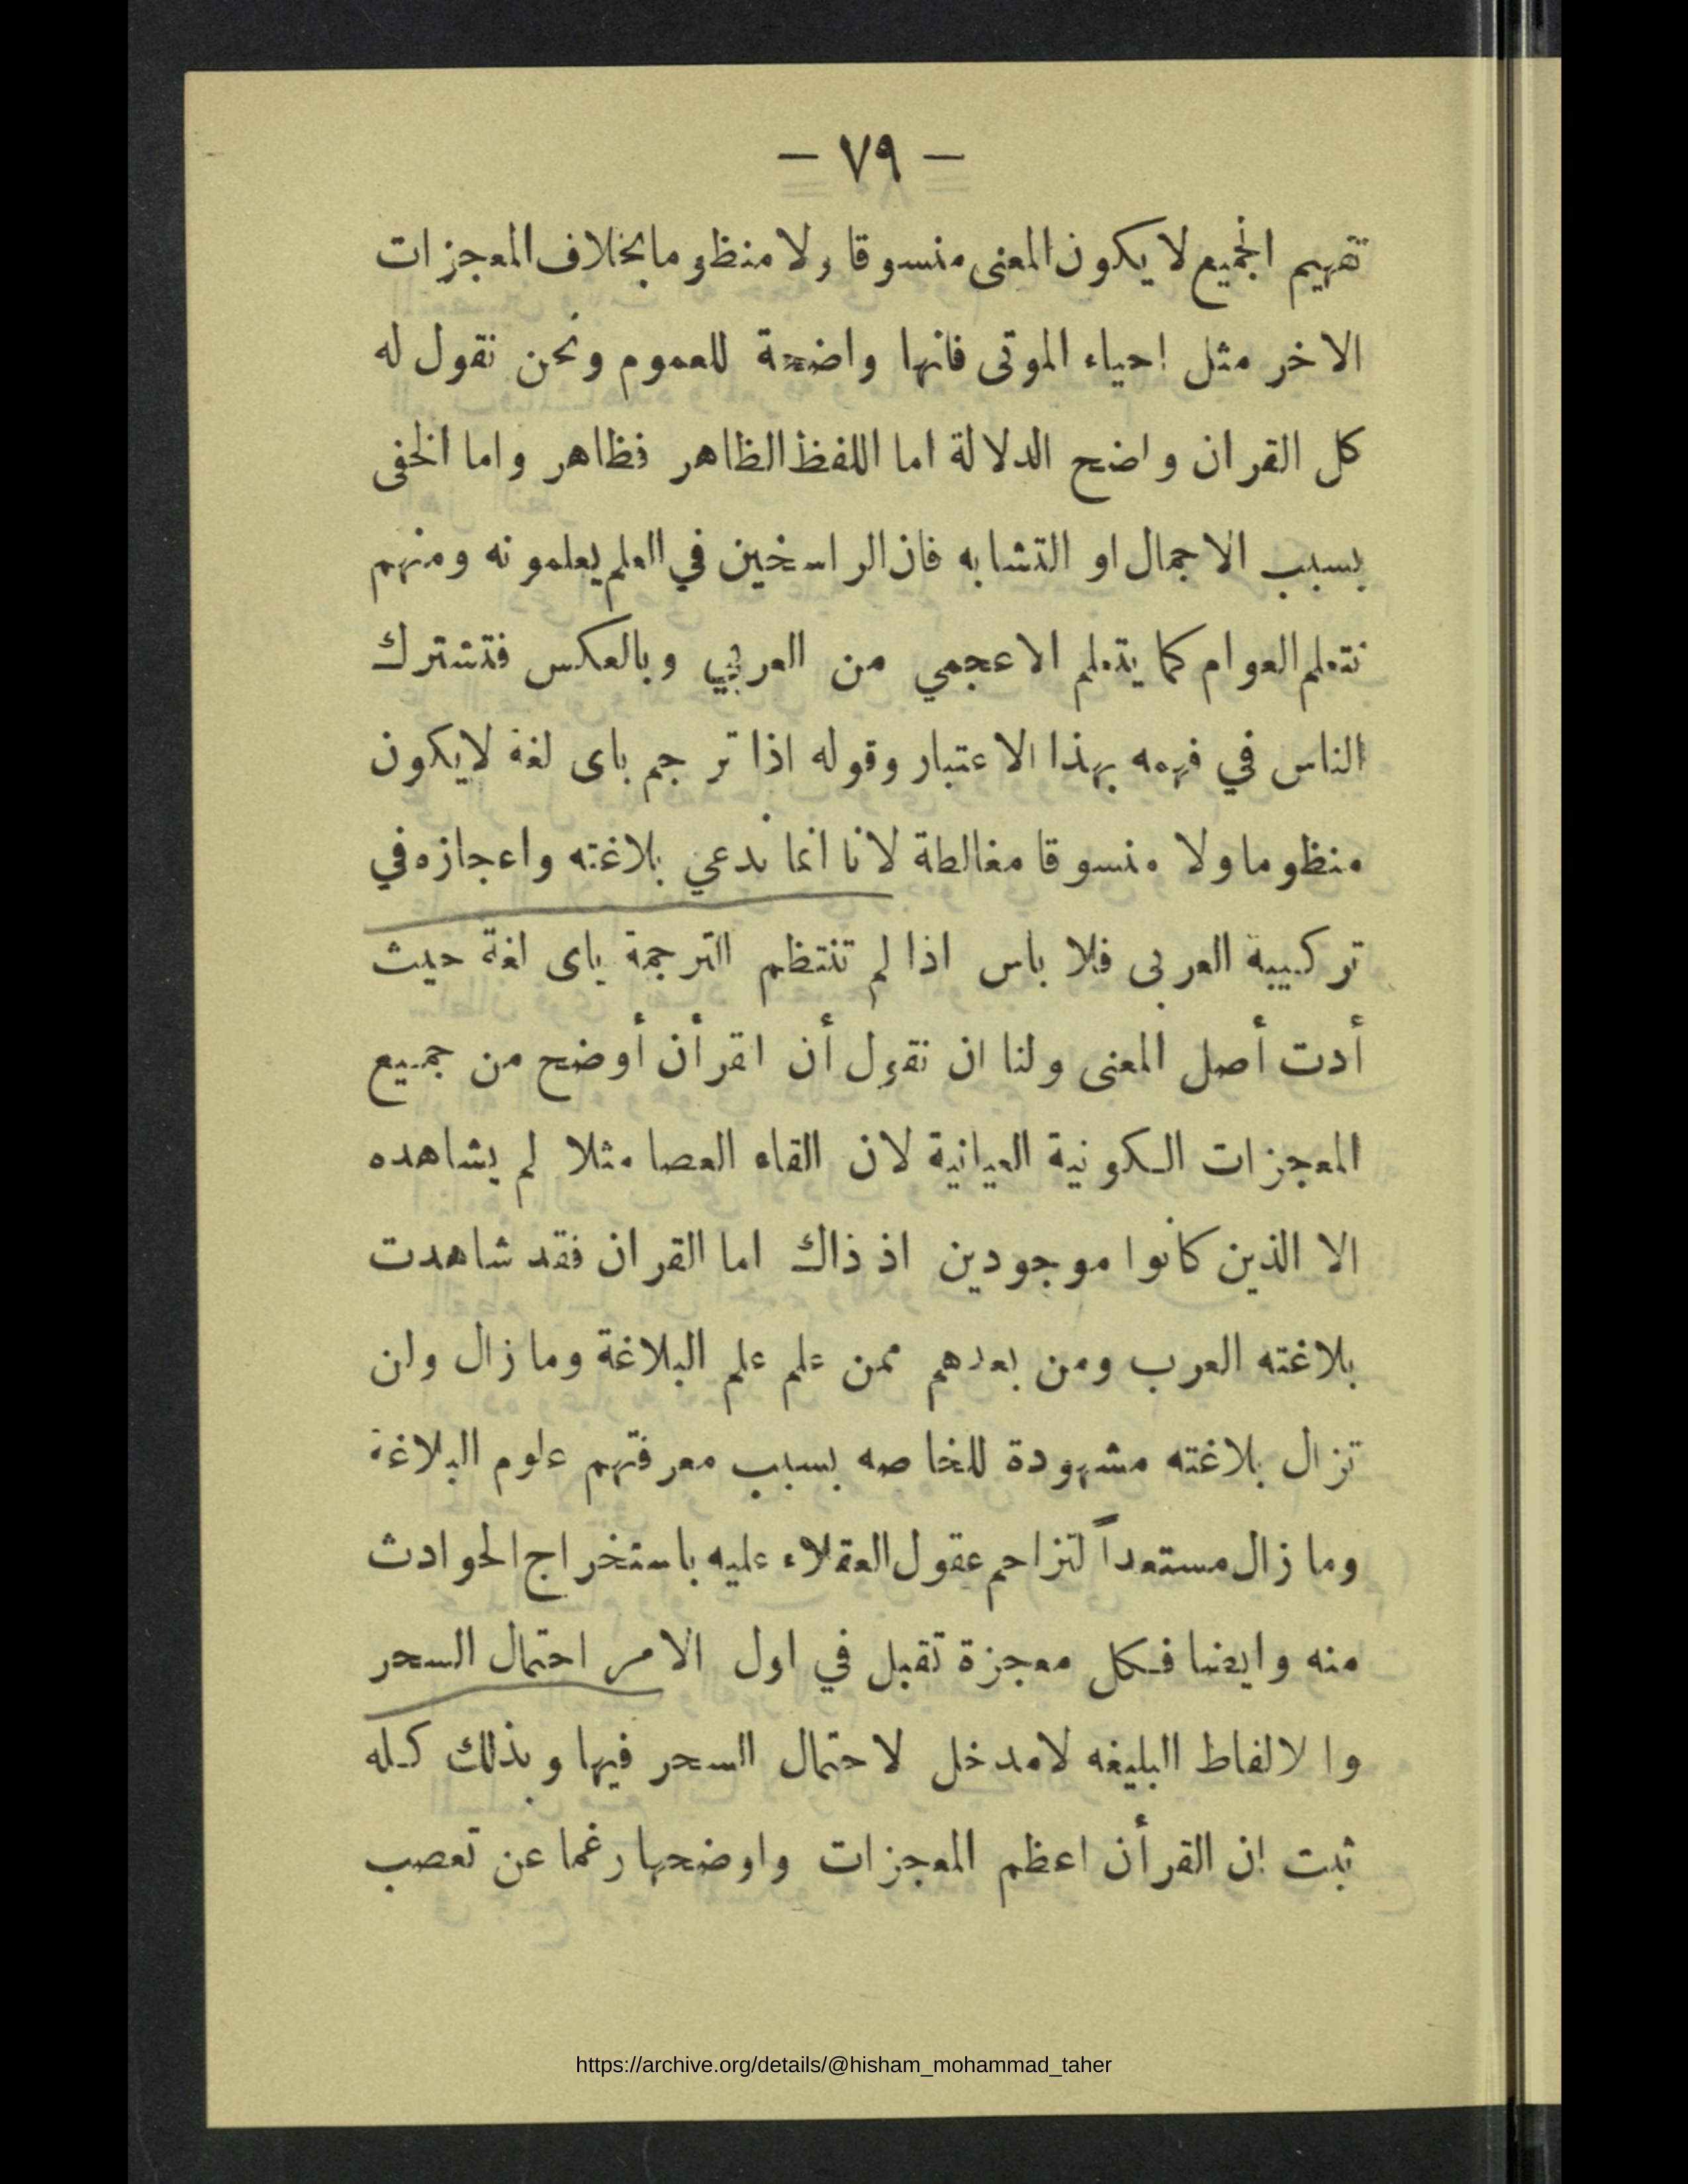 — ٧٩ —
تفهيم الجميع لا يكون المعنى منسوقا ولا منظوما بخلاف المعجزات
الاخر مثل احياء الموتى فانها واضحة للعموم ونحن نقول له
كل القران واضح الدلالة اما اللفظ الظاهر فظاهر واما الخفى
بسبب الاجمال او التشابه فان الراسخين في العلم يعلمونه ومنهم
تتعلم العوام كما يتعلم الاعجمي من العربي وبالعكس فتشترك
الناس في فهمه بهذا الاعتبار وقوله اذا ترجم باى لغة لايكون
منظوما ولا منسوقا مغالطة لانا انما ندعي بلاغته واعجازه في
تركيبية العربى فلا باس اذا لم تنتظم الترجمة باى لغة حيث
أدت أصل المعنى ولنا ان نقول أن اقرأن أوضح من جميع
المعجزات الكونية العيانية لان القاء العصا مثلا لم يشاهده
الا الذين كانوا موجودين اذ ذاك اما القران فقد شاهدت
بلاغته العرب ومن بعدهم ممن علم علم البلاغة وما زال ولن
تزال بلاغته مشهودة للخاصه بسبب معرفتهم علوم البلاغة
وما زال مستعداً لتزاحم عقول العقلاء عليه باستخراج الحوادث
منه وايضا فكل معجزة تقبل في اول الامر احتمال السحر
والالفاظ البليغه لامدخل لاحتمال السحر فيها وبذلك كله
ثبت ان القرأن اعظم المعجزات واوضحها رغما عن تعصب
https://archive.org/details/@hisham_mohammad_taher